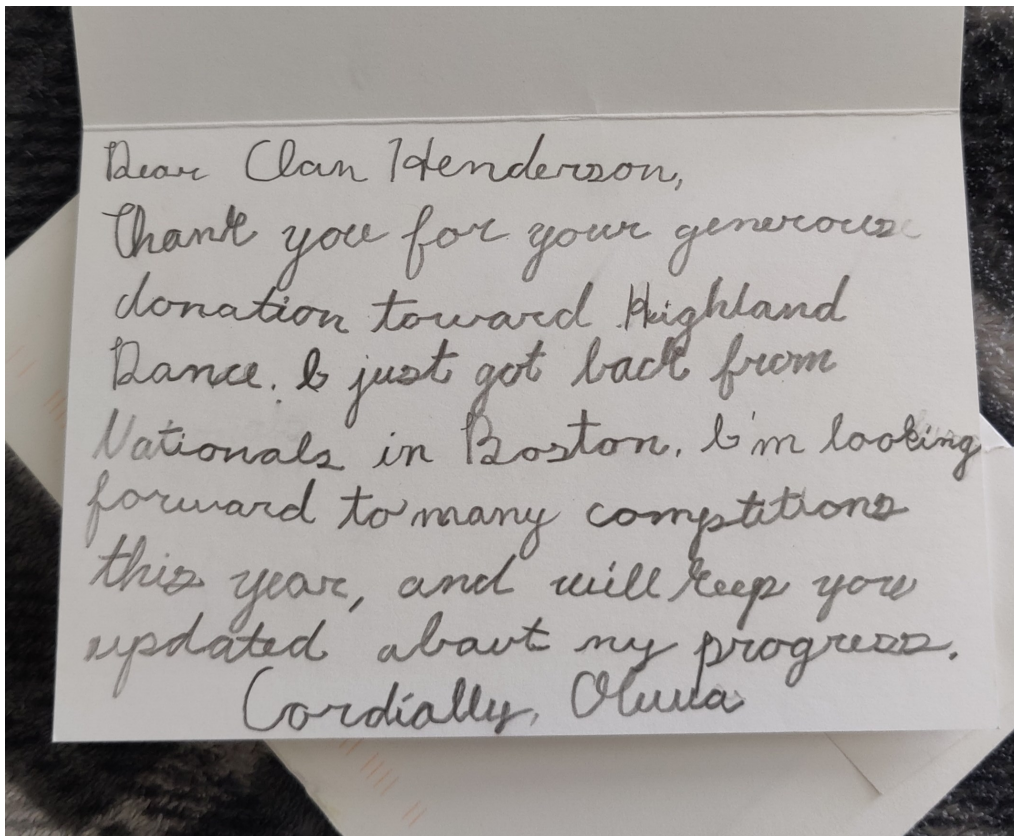 Dear Clan Henderson,
Thank you for your generous
donation toward Highland
Dance. I just got back from
Nationals in Boston. I'm looking
forward to many comptitions
this year, and will keep you
updated about my progress.
Cordially, Olivia